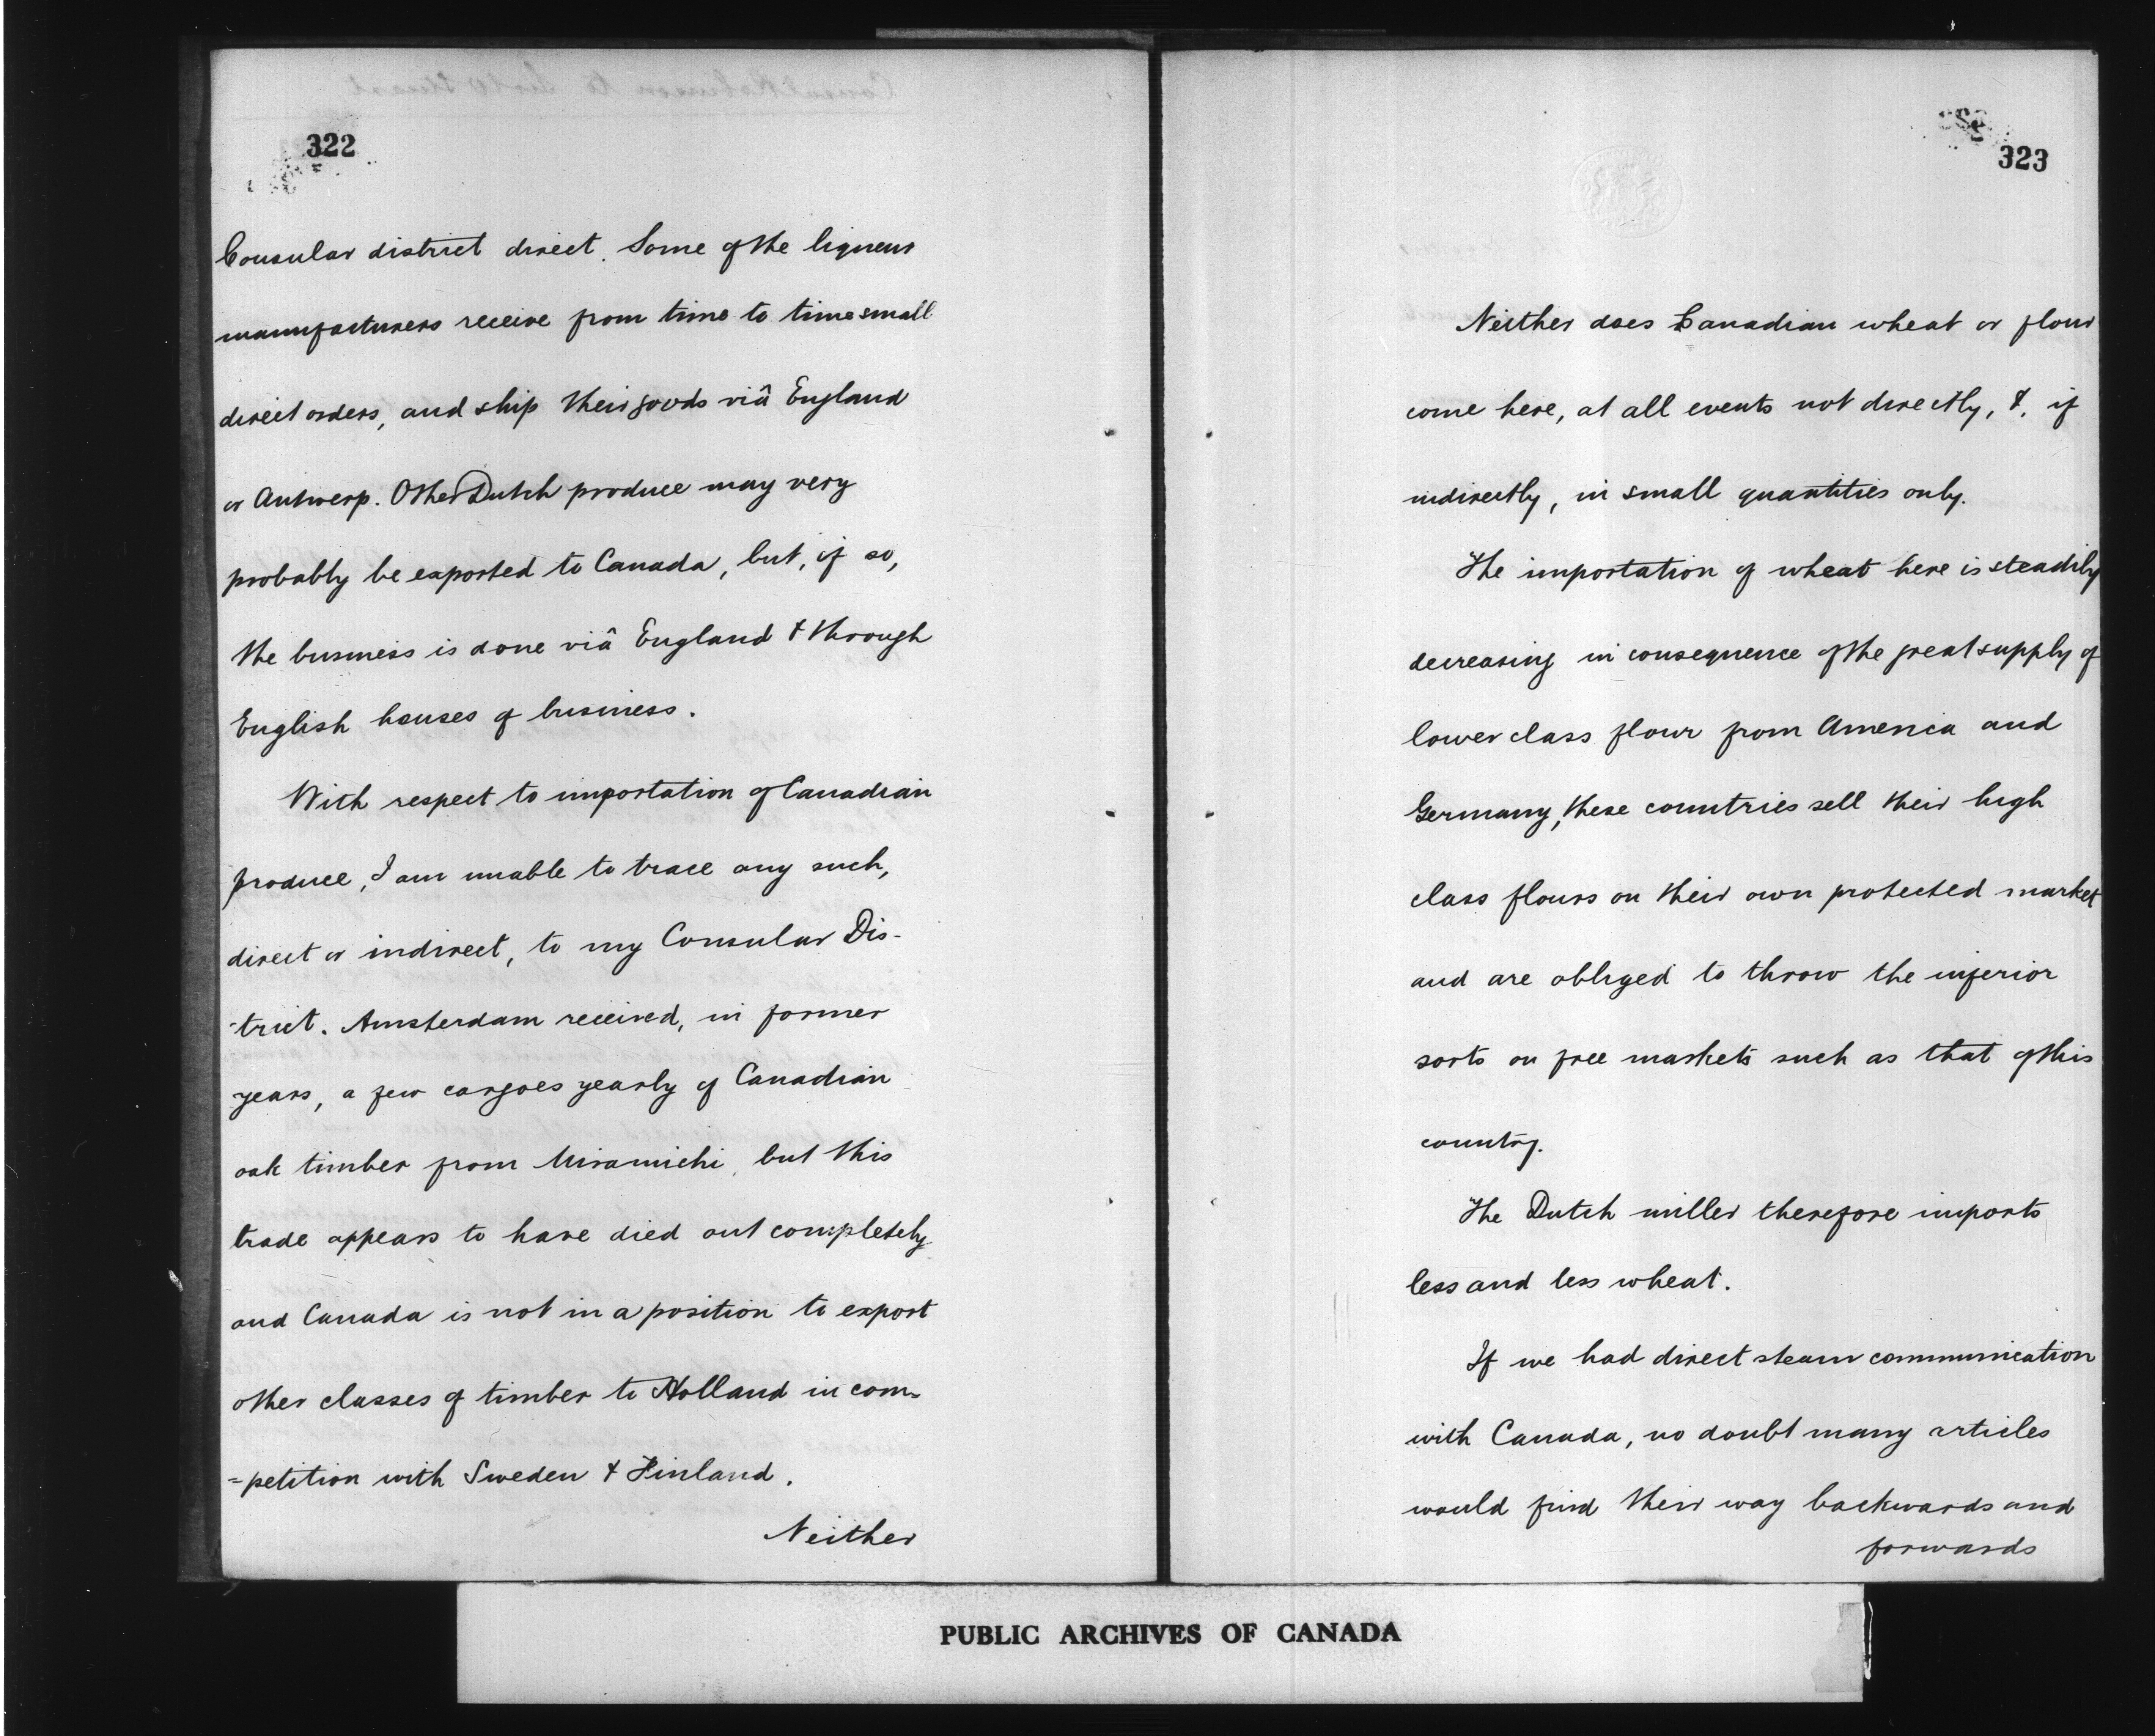 322
Consular district direct. Some of the liqueur
manufacturers receive from time to time small
direct orders, and ship their goods viâ England
or Antwerp. Other Dutch produce may very
probably be exported to Canada, but, if so,
the business is done viâ England & through
English houses of business.
With respect to importation of Canadian
produce, I am unable to trace any such,
direct or indirect, to my Consular Dis-
-trict. Amsterdam received, in former
years, a few cargoes yearly of Canadian
oak timber from Miramichi, but this
trade appears to have died out completely
and Canada is not in a position to export
other classes of timber to Holland in com=
=petition with Sweden & Finland.
Neither
323
Neither does Canadian wheat or flour
come here, at all events not directly, &, if
indirectly, in small quantities only.
The importation of wheat here is steadily
decreasing in consequence of the great supply of
lower class flour from America and
Germany, these countries sell their high
class flours on their own protected market
and are obliged to throw the inferior
sorts on free markets such as that of this
country.
The Dutch miller therefore imports
less and less wheat.
If we had direct steam communication
with Canada, no doubt many articles
would find their way backwards and
forwards
PUBLIC ARCHIVES OF CANADA